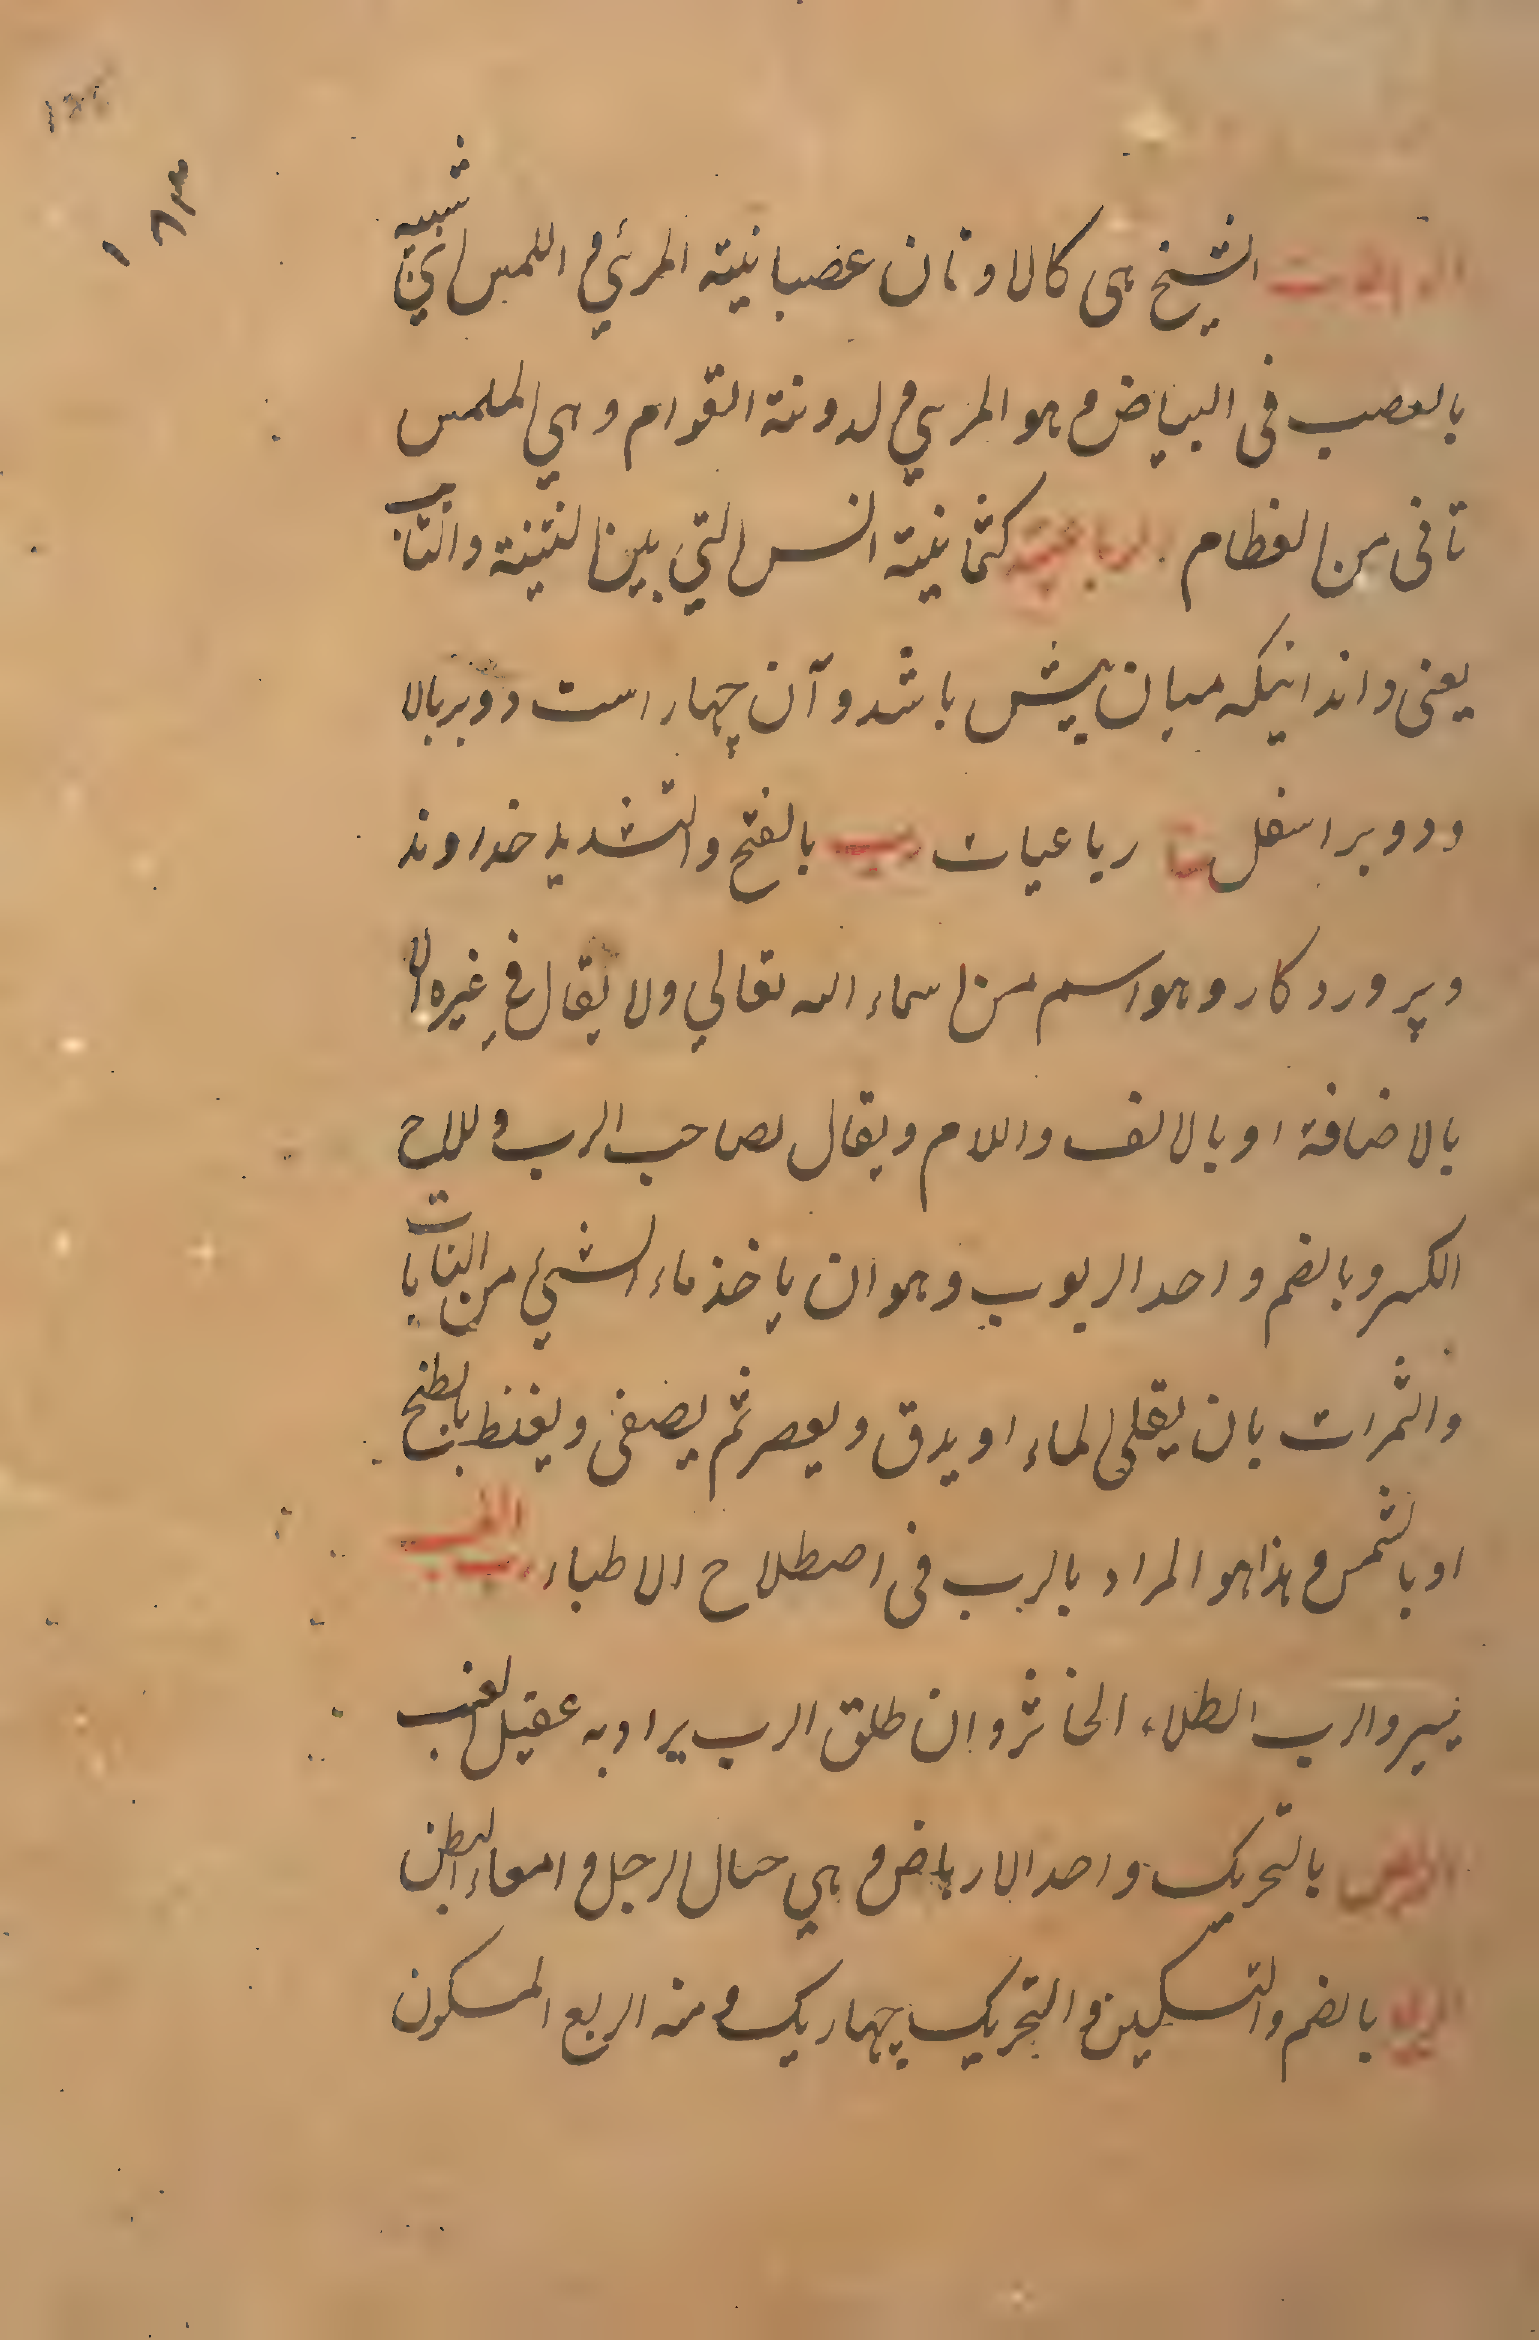 الشيخ هى كالاوتان عصبانية المرئي و اللمس اي شبيه
بالعصب فى البياض و هو المرىي و لدونة القوام و هي الملمس
تافى من العظام الرباعية كثمانية السن التي بين الثنية والناب
يعنى دندانيكه ميان پيش باشد و آن چهار است دو بر بالا
و دو بر اسفل رباعيات رب بالفتح والتشديد خداوند
و پروردكار و هو اسم من اسماء الله تعالي ولا يقال في غيره الا
بالاضافة او بالالف واللام و يقال لصاحب الرب و للاح
الكسر و بالضم واحد الربوب و هو ان ياخذ ماء الشيئ من النبات با
والثمرات بان يقلى الماء او يدق و يعصر ثم يصفى و يغلظ بالطبخ
او بالشمس و هذا هو المراد بالرب فى اصطلاح الاطباء رب
يسير والرب الطلاء الخاثر و ان طلق الرب يراد به عقيل العنب
الربض بالتحريك واحد الارباض و هي حبال الرجل و امعاء البطن
الربع بالضم والتسكين و التحريك چهاريك و منه الربع المسكون